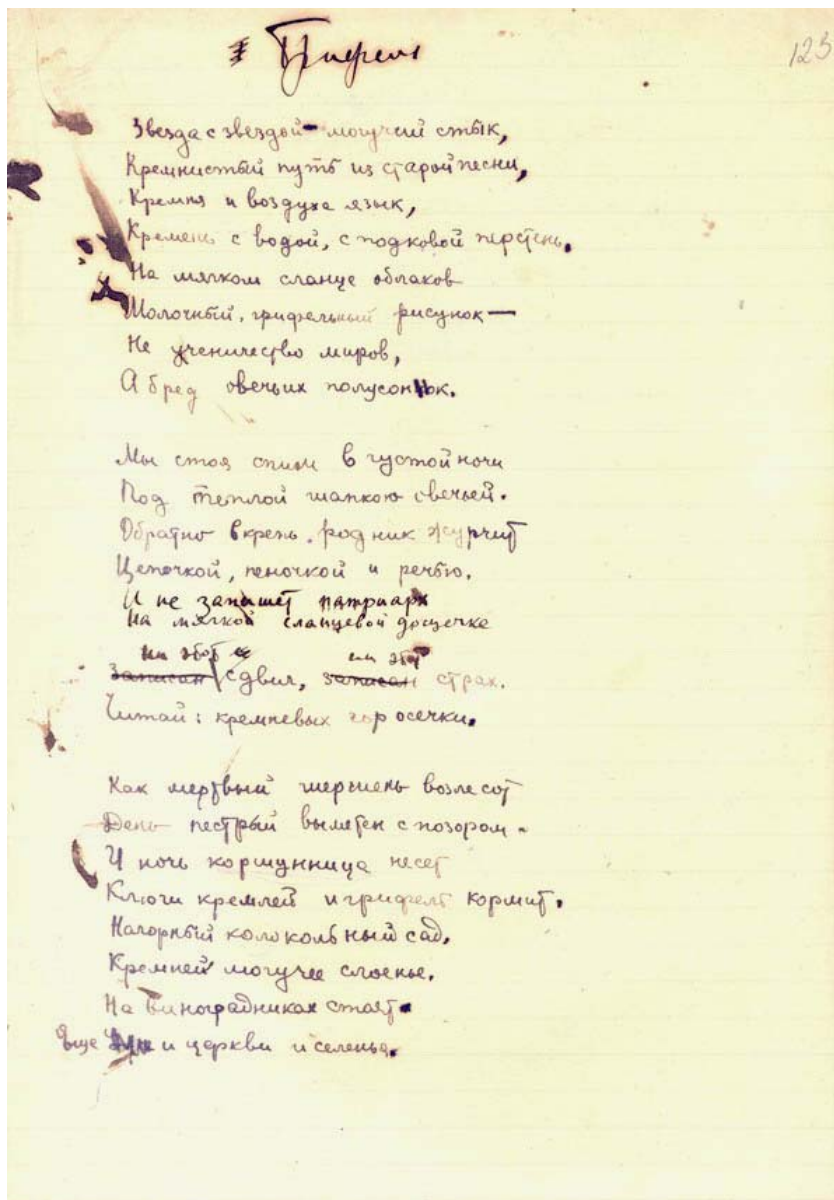 Грифель
123
Звезда с звездой – могучий стык,
Кремнистый путь из старой песни,
Кремня и воздуха язык,
Кремень с водой, с подковой перстень.
На мягком сланце облаков
Молочный, грифельный рисунок —
Не ученичество миров,
А бред овечьих полусонок.
Мы стоя спим в густой ночи
Под теплой шапкою овечьей.
Обратно в крепь родник журчит
Цепочкой, пеночкой и речью.
И не запишет патриарх
На мягкой сланцевой дощечке
ни этот ни этот
записан сдвиг, записан страх.
Читай: кремневых гор осечки.
Как мертвый шершень возле сот
День пестрый выметен с позором.
И ночь коршунница несет
Ключи кремлей и грифель кормит.
Нагорный колокольный сад,
Кремней могучее слоенье.
На виноградниках стоят
Еще и церкви и селенья.